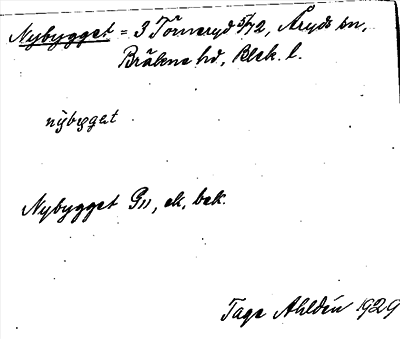 Nybygget = 3 Törneryd 5/72, Åryds sn,
Bräkne hd, Blek. l.
nỳbyget
Nybygget Gn, ek, bek.
Tage Ahldén 1929